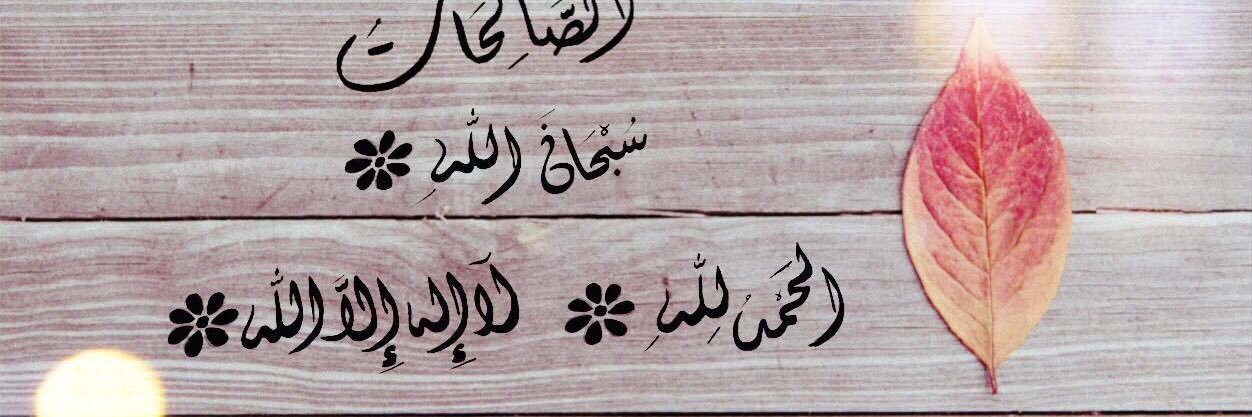 الصَّالِحَاتُ
سُبْحَانَ اللهِ
الحَمْدُ لِلّٰهِ لَا إِلهَ إِلَّا اللّٰه